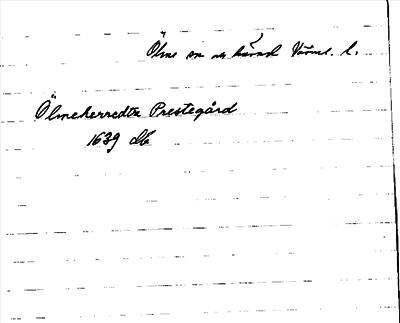 Ölme sn och härad Värml. l.
Ölmeherredtz Prestegård
1639 db